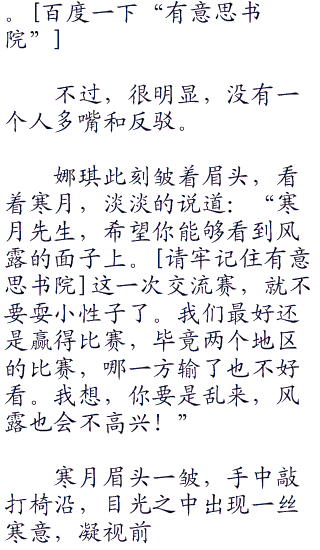 。[百度一下“有意思书
院”]
不过，很明显，没有一
个人多嘴和反驳。
娜琪此刻皱着眉头，看
着寒月，淡淡的说道：“寒
月先生，希望你能够看到风
露的面子上。[请牢记住有意
思书院]这一次交流赛，就不
要耍小性子了。我们最好还
是赢得比赛，毕竟两个地区
的比赛，哪一方输了也不好
看。我想，你要是乱来，风
露也会不高兴！”
寒月眉头一皱，手中敲
打椅沿，目光之中出现一丝
寒意，凝视前